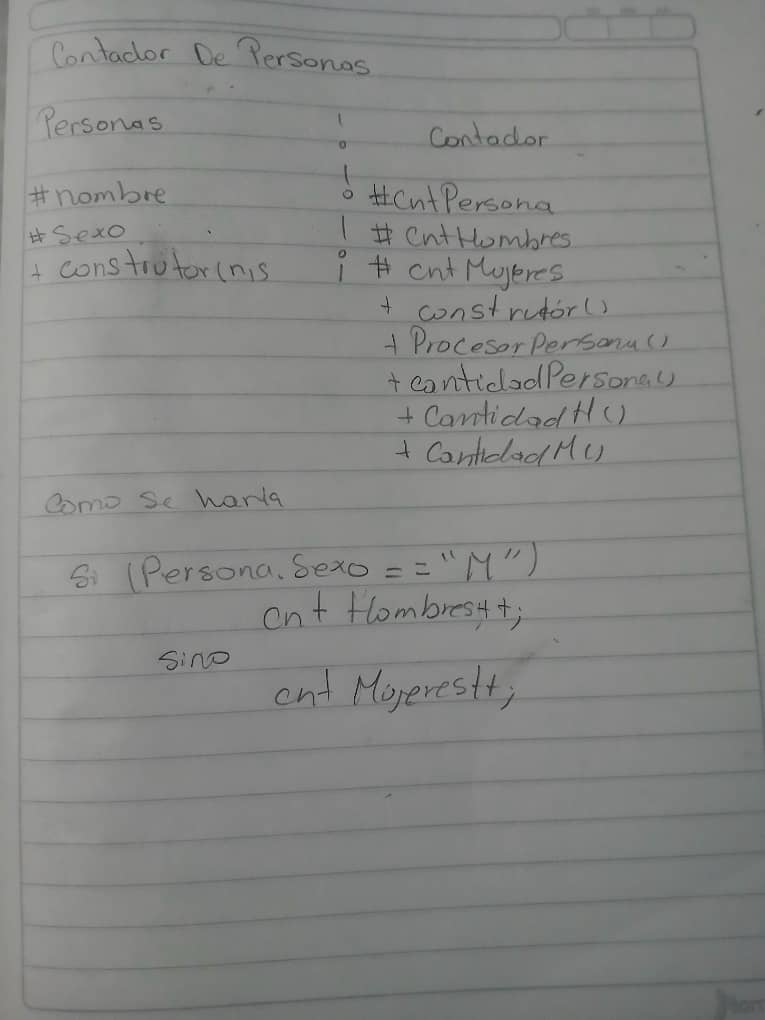 Contador De Personas
Personas
Contador
#nombre
#Sexo
+ construtor(n,s
#CntPersona
# CntHombres
# cntMujeres
+ construtór()
+ ProcesorPersona()
+ cantidadPersona()
+ CantidadH()
+ CantidadM()
Como Se haria
Si (Persona.Sexo == "M")
cnt Hombres++;
sino
cnt Mujeres++;